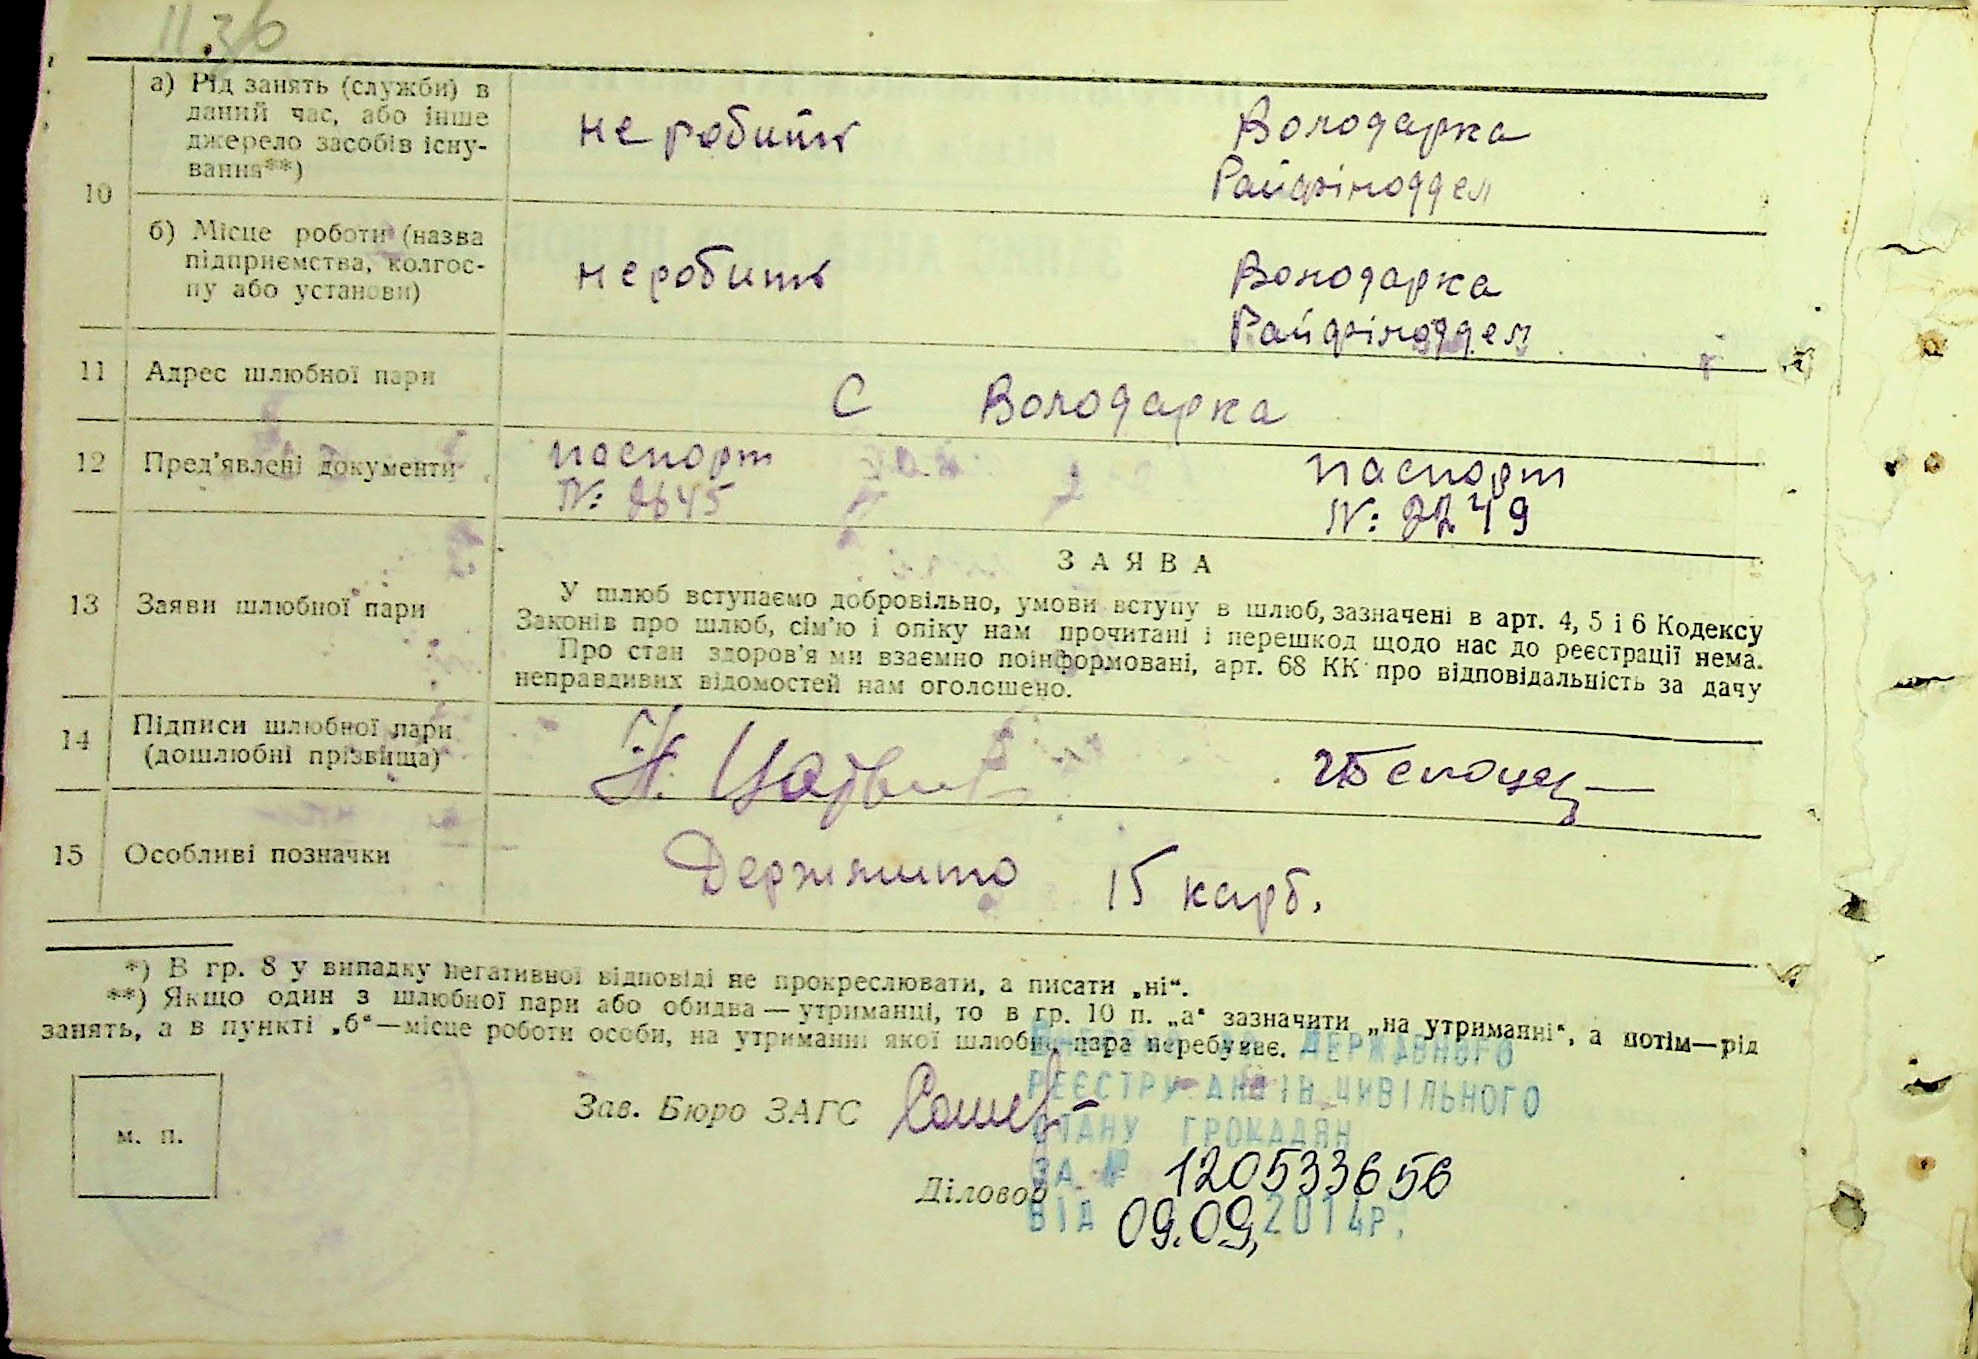 11 зв
10
а) Рід занять (служби) в
даний час, або інше
джерело засобів існу-
вання**)
не робить
Володарка
Райфіноддел
б) Місце роботи (назва
підприємства, колгос-
пу або установи)
не робить
Володарка
Райфіноддел
11 Адрес шлюбної пари
С Володарка
12 Пред'явлені документи
паспорт
№: 2645
паспорт
№: 2249
13 Заяви шлюбної пари
ЗАЯВА
У шлюб вступаємо добровільно, умови вступу в шлюб, зазначені в арт. 4, 5 і 6 Кодексу
Законів про шлюб, сім'ю і опіку нам прочитані і перешкод щодо нас до реєстрації нема.
Про стан здоров'я ми взаємно поінформовані, арт. 68 КК про відповідальність за дачу
неправдивих відомостей нам оголошено.
14 Підписи шлюбної пари
(дошлюбні прізвища)
15 Особливі позначки
Держмито 15 карб.
*) В гр. 8 у випадку негативної відповіді не прокреслювати, а писати „ні“.
**) Якщо один з шлюбної пари або обидва — утриманці, то в гр. 10 п. „а“ зазначити „на утриманні“, а потім—рід
занять, а в пункті „б“—місце роботи особи, на утриманні якої шлюбна пара перебуває.
м. п.
Зав. Бюро ЗАГС
Діловод
ДЕРЖАВНОГО
РЕЄСТРУ АКТІВ ЦИВІЛЬНОГО
СТАНУ ГРОМАДЯН
ЗА № 120533656
ВІД 09.09.2014р.